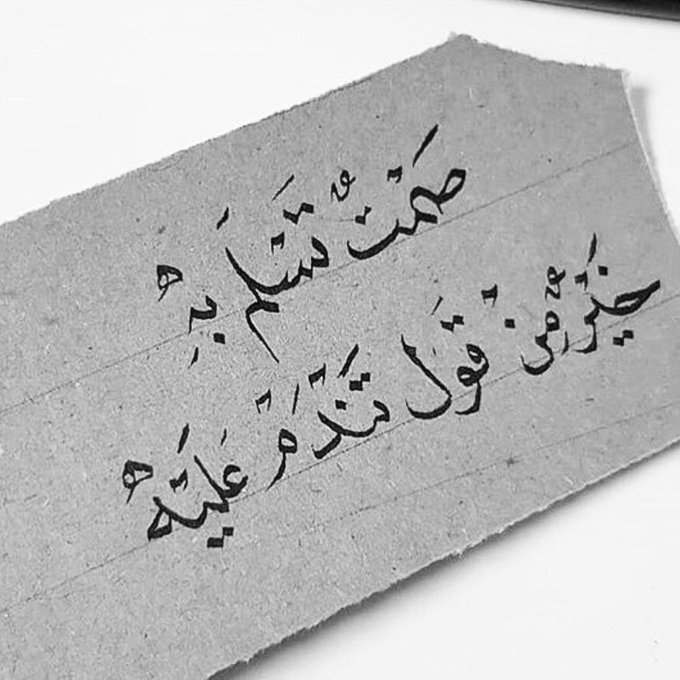 صَمْتٌ تَسْلَمَ بِهِ
خَيْرٌ مِنْ قَوْلٍ تَنْدَمَ عَلَيْهِ